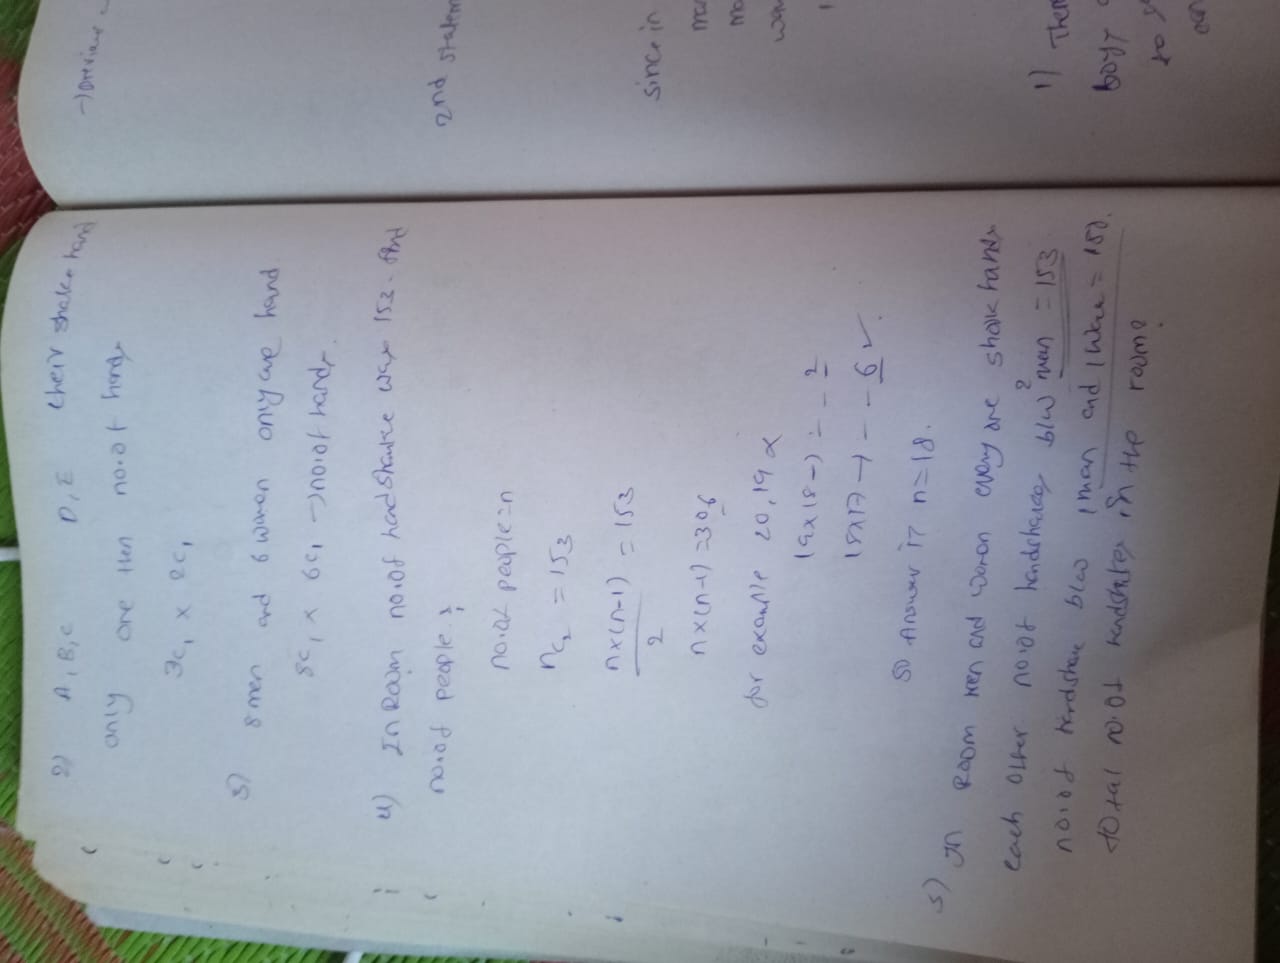 2) A, B, C D, E their shake hand
only one then no.of hands
3C1 x 2C1
3) 8 men and 6 women only are hand
8C1 x 6C1 → no.of hands.
4) In Room no.of handshake was 153. find
no.of people?
no.of people = n
nC2 = 153
n x (n-1) / 2 = 153
n x (n-1) = 306
for example 20, 19 x
19 x 18 → - - 2
18 x 17 → - - 6 ✓.
so Answer is n = 18.
5) In Room men and women every are shake hands
each other no.of handshakes b/w 2 men = 153
no.of handshake b/w 1 man and 1 = 
total no.of handshakes in the room?
→
2nd
since in
1)